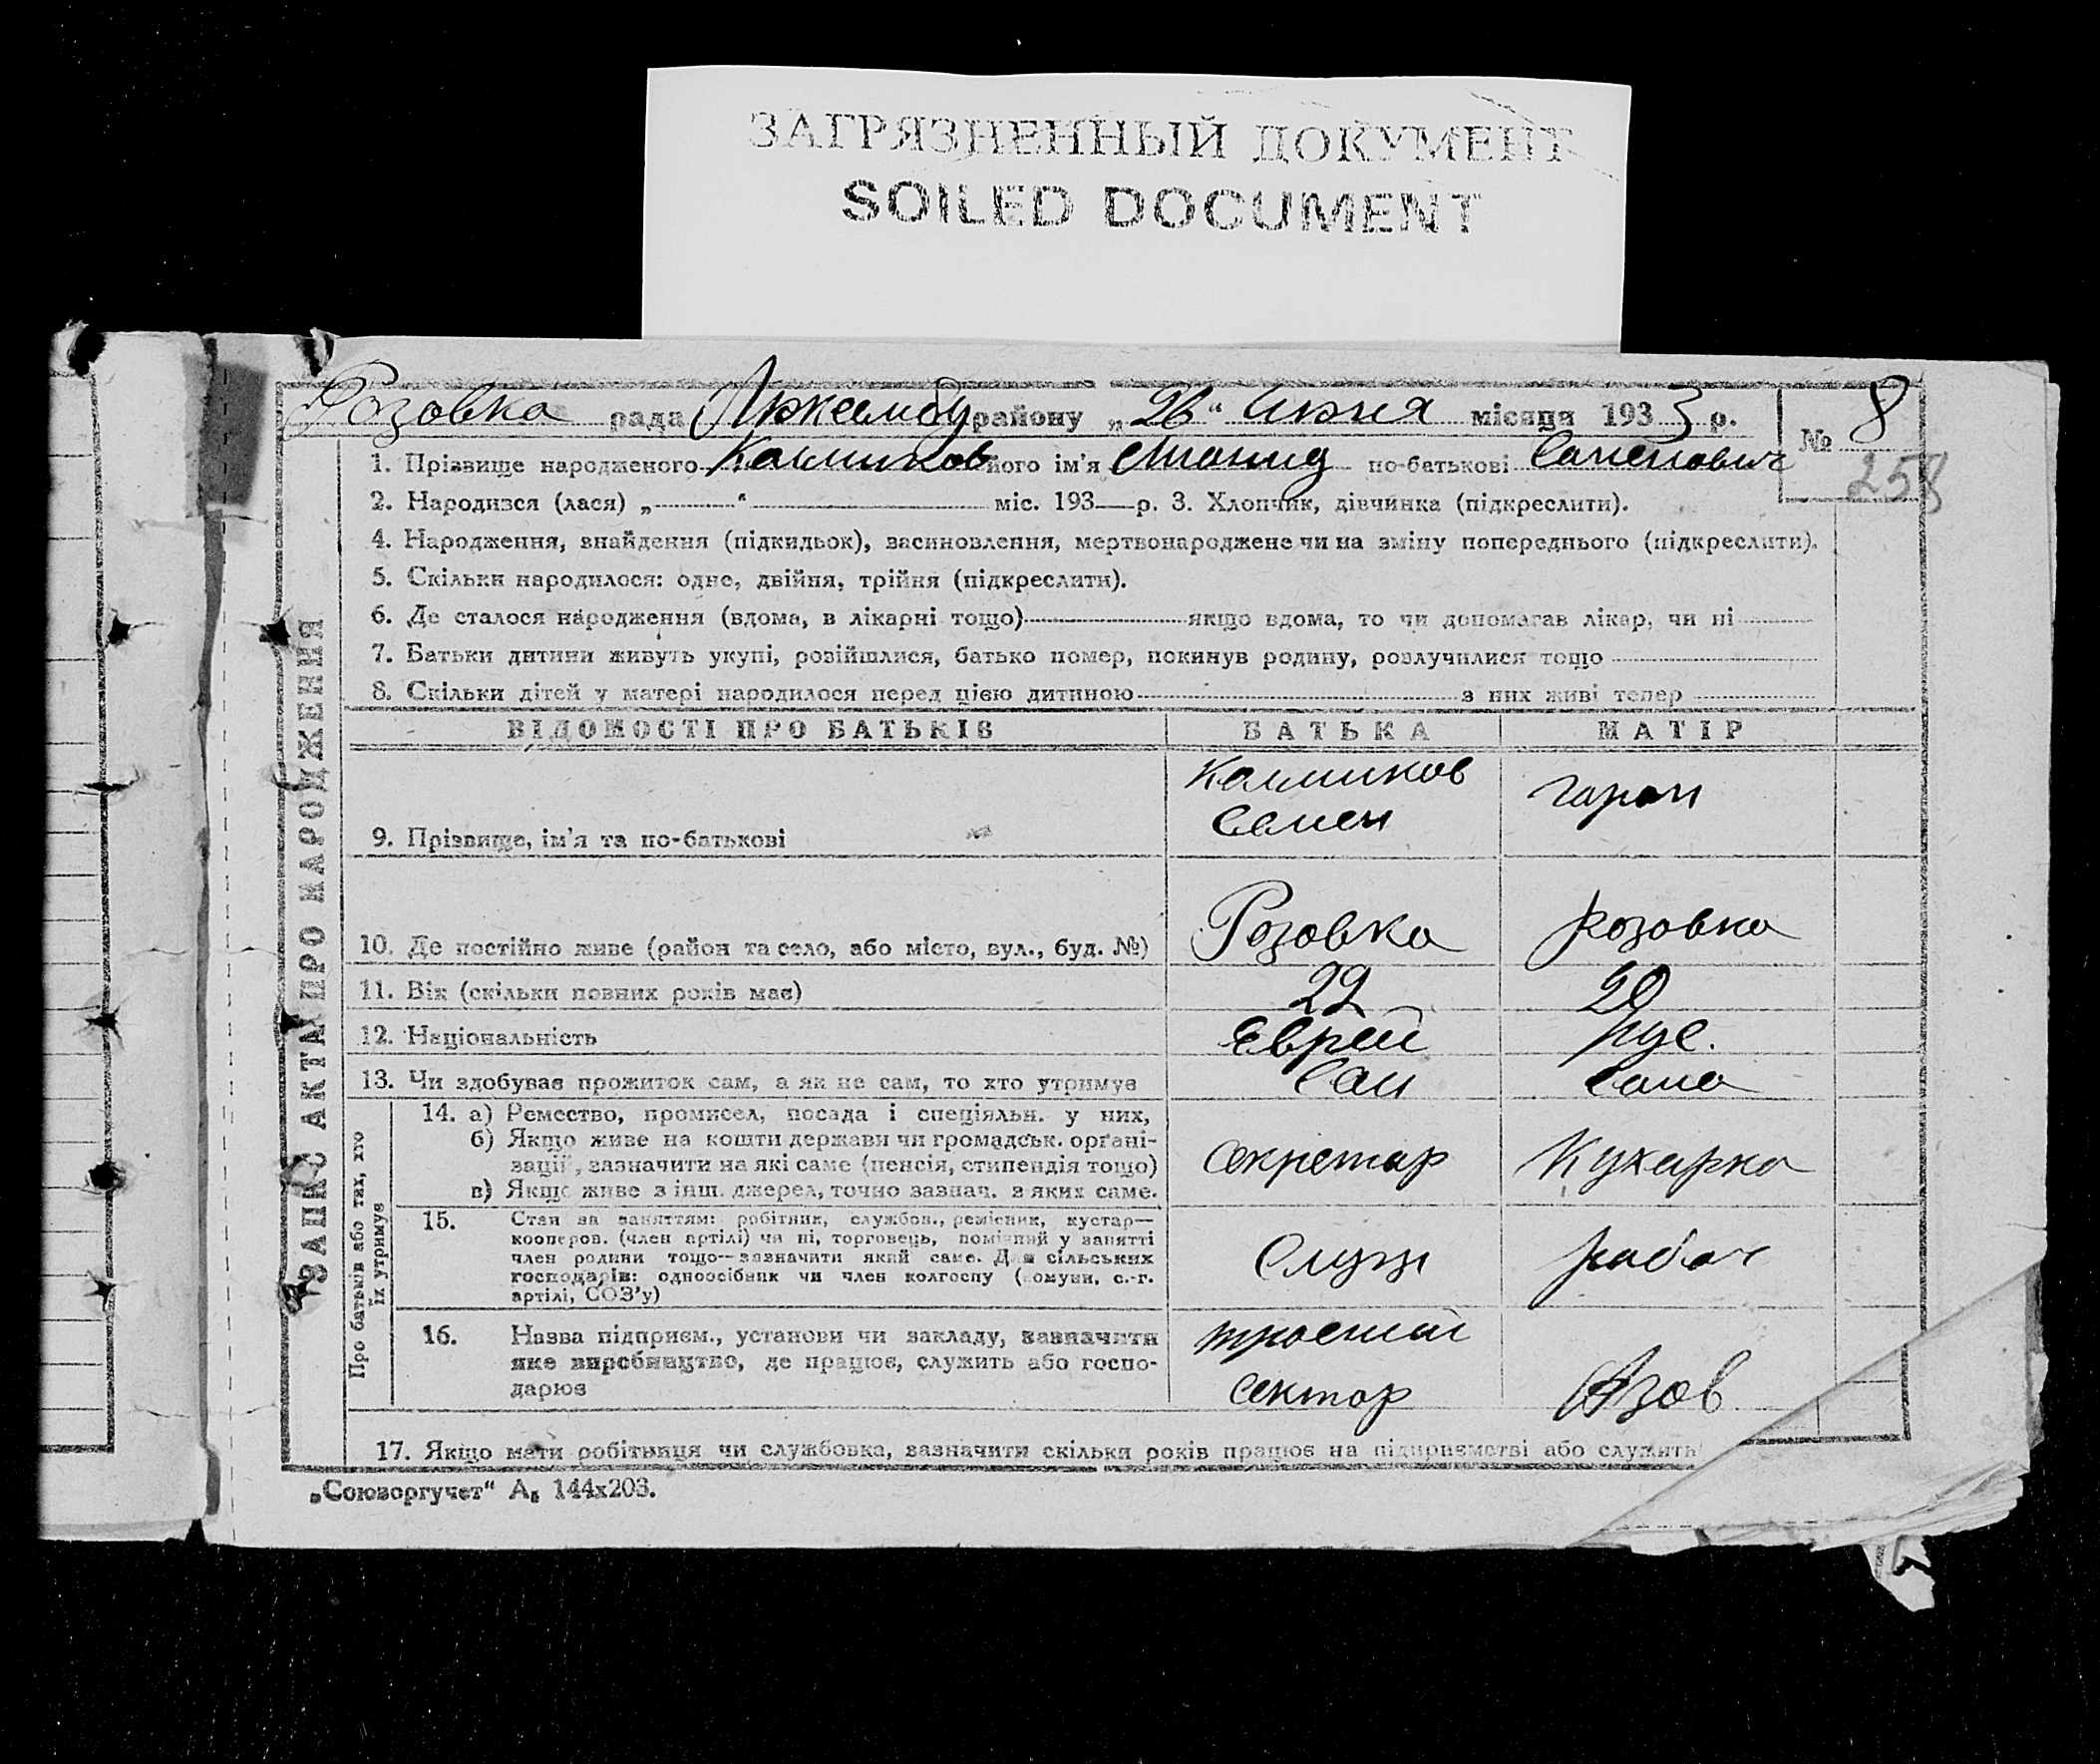 ЗАГРЯЗНЕННЫЙ ДОКУМЕНТ
SOILED DOCUMENT
Розовка рада району „26“ Июня місяця 1933 р.
№ 8
258
1. Прізвище народженого Калмиков його ім'я по-батькові Семенович
2. Народився (лася) „ “ міс. 193 р. 3. Хлопчик, дівчинка (підкреслити).
4. Народження, внайдення (підкидьок), васиновлення, мертвонароджене чи на зміну попереднього (підкреслити).
5. Скільки народилося: одне, двійня, трійня (підкреслити).
6. Де сталося народження (вдома, в лікарні тощо) якщо вдома, то чи допомагав лікар, чи ні
7. Батьки дитини живуть укупі, розійшлися, батько помер, покинув родину, розлучилися тощо
8. Скільки дітей у матері народилося перед цією дитиною з них живі тепер
ЗАПИС АКТА ПРО НАРОДЖЕННЯ
ВІДОМОСТІ ПРО БАТЬКІВ БАТЬКА МАТІР
Калмиков
Семен
9. Прізвище, ім'я та по-батькові
10. Де постійно живе (район та село, або місто, вул., буд. №) Розовка Розовка
11. Вік (скільки повних років має) 22 20
12. Національність Еврей рус.
13. Чи здобуває прожиток сам, а як не сам, то хто утримує Сам Сама
Про батьків або тих, хто
їх утримує
14. а) Ремество, промисел, посада і спеціяльн. у них,
б) Якщо живе на кошти держави чи громадськ. органі-
зації, зазначити на які саме (пенсія, стипендія тощо) секретар Кухарка
в) Якщо живе з інш. джерел, точно зазнач. з яких саме.
15. Стан за заняттям: робітник, службов., ремісник, кустар—
кооперов. (член артілі) чи ні, торговець, помічний у занятті
член родини тощо—зазначити який саме. Для сільських
господарів: одноосібник чи член колгоспу (комуни, с.-г.
артілі, СОЗ'у)
Служ рабоч
16. Назва підприєм., установи чи закладу, зазначити
яке виробництво, де працює, служить або госпо-
дарює
сектор Азов
17. Якщо мати робітниця чи службовка, зазначити скільки років працює на підприємстві або служить
„Союзоргучет“ А₅ 144х203.